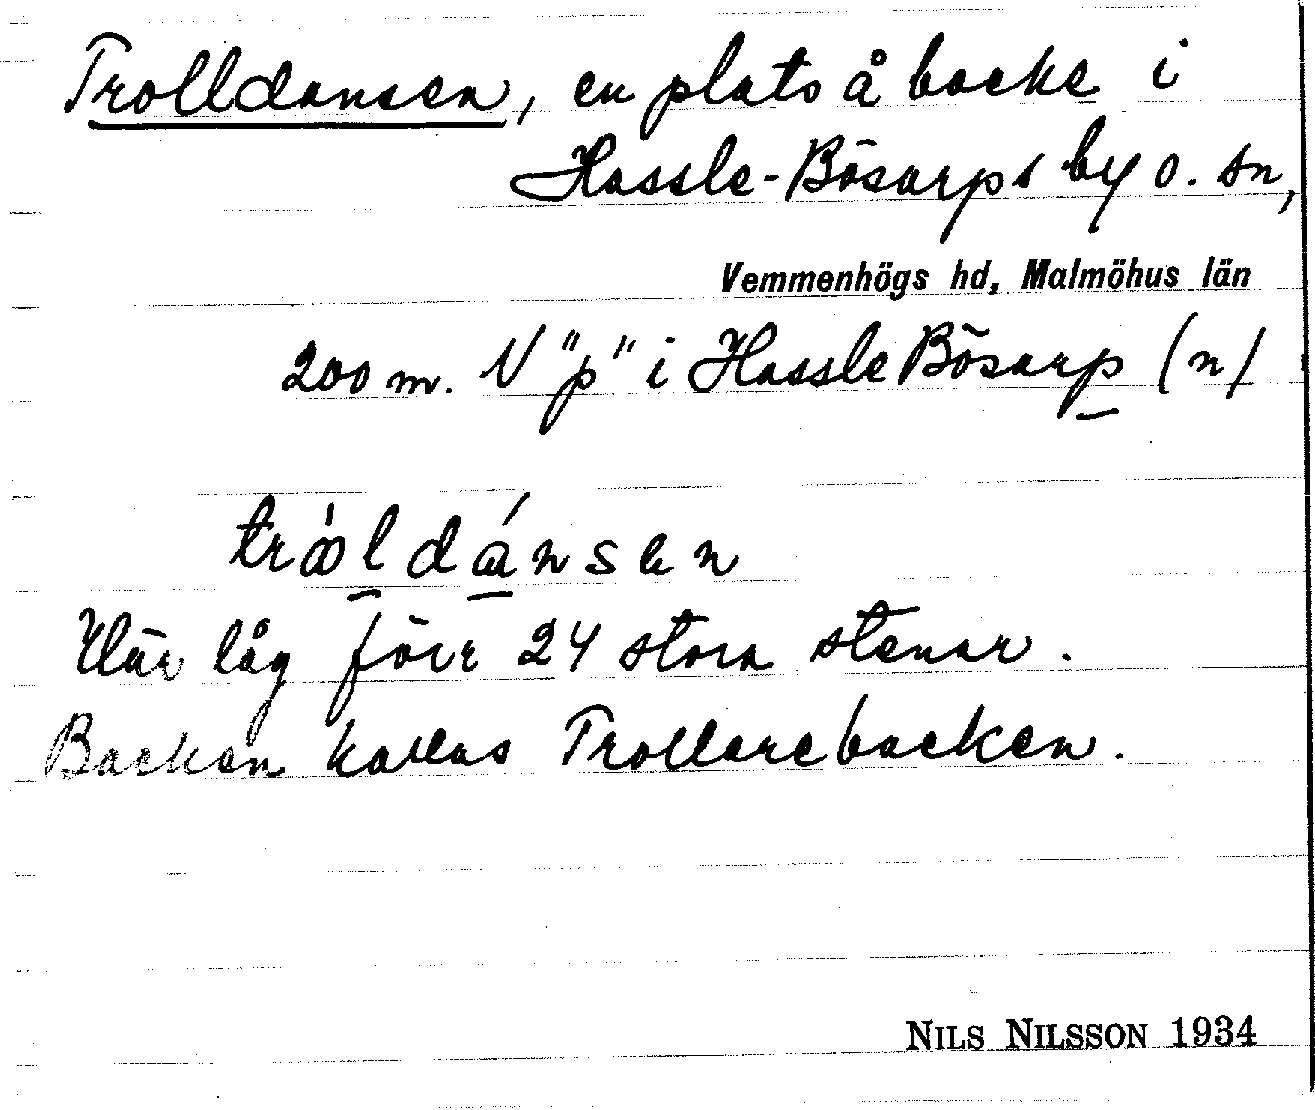 Trolldansen, en plats å backe i
Hassle-Bösarps by o. sn,
Vemmenhögs hd, Malmöhus län
200 m. N "p" i Hassle Bösarp (n)
trȯldánsen
Där låg förr 24 stora stenar.
Backen kallas Trollarebacken.
NILS NILSSON 1934